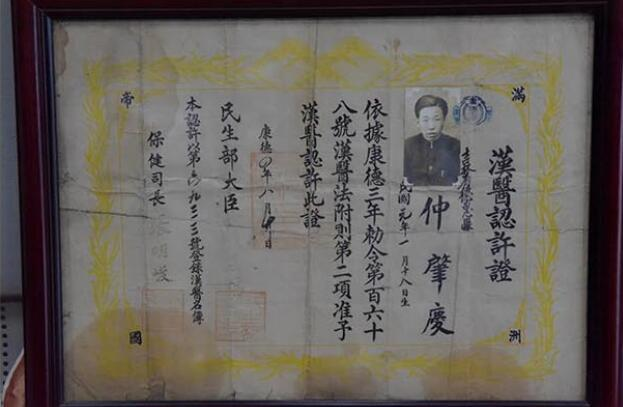 滿
洲
帝
國
漢醫認許證
仲肇慶
民國元年一月十八日生
依據康德三年勅令第百六十
八號漢醫法附則第二項准予
漢醫認許此證
康德 年八月 日
民生部大臣
本認許以第 九三三號登錄漢醫名簿
保健司長 張明峻